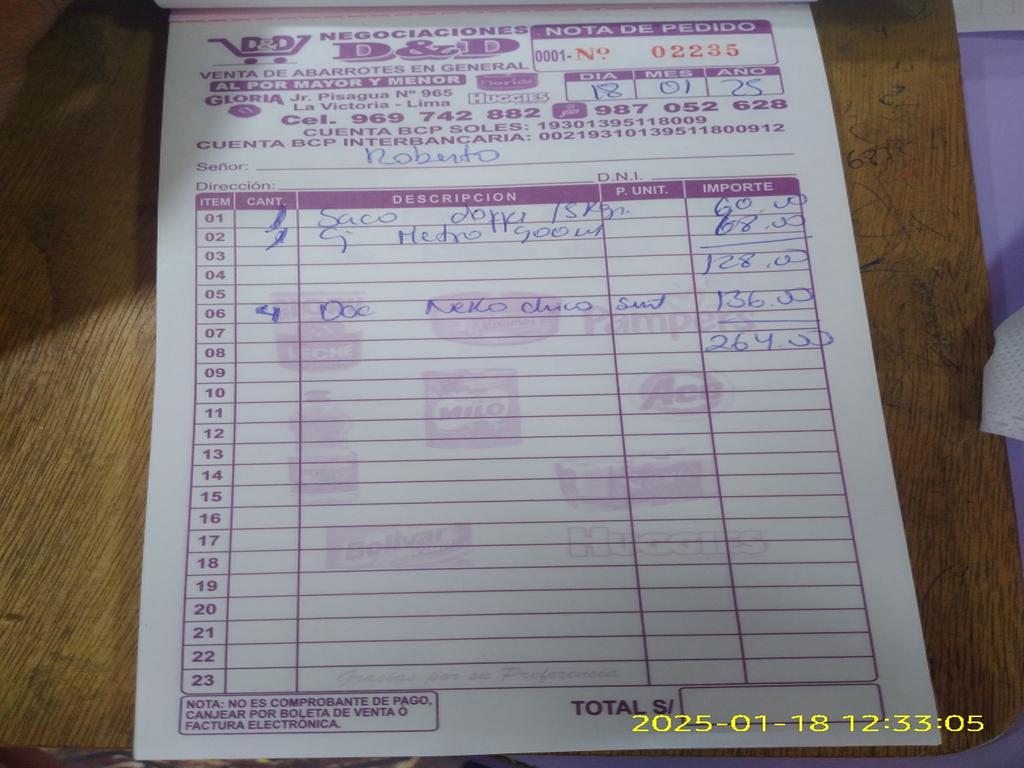 D&D NEGOCIACIONES
D&D
VENTA DE ABARROTES EN GENERAL
AL POR MAYOR Y MENOR
GLORIA Jr. Pisagua Nº 965 HUGGIES
La Victoria - Lima
Cel. 969 742 882 987 052 628
CUENTA BCP SOLES: 19301395118009
CUENTA BCP INTERBANCARIA: 00219310139511800912
NOTA DE PEDIDO
0001- Nº 02235
DIA MES AÑO
18 01 25
Señor: Roberto
Dirección: D.N.I.
ITEM CANT. DESCRIPCION P. UNIT. IMPORTE
01 1 Saco 15 Kgr. 60.00
02 1 Metro 900 ml 68.00
03 128.00
04
05
06 4 Doc Neko chico surt 136.00
07
08 264.00
09
10
11
12
13
14
15
16
17
18
19
20
21
22
23
LECHE
Pampers
MILO
Ace
Bolívar
HUGGIES
Gracias por su Preferencia
NOTA: NO ES COMPROBANTE DE PAGO,
CANJEAR POR BOLETA DE VENTA Ó
FACTURA ELECTRÓNICA.
TOTAL S/
2025-01-18 12:33:05